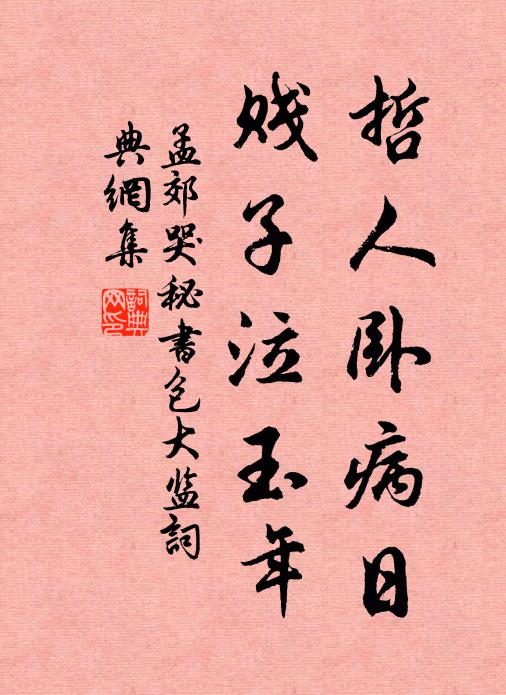 哲人卧病日
贱子泣玉年
孟郊哭秘书包大监詞
典網集
詞典網印